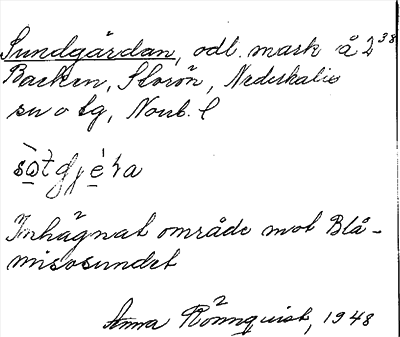 Sundgärdan, odl. mark å 2³⁸
Backen, Storön, Nederkalix
sn o tg, Norrb. l
Inhägnat område mot Blå-
misosundet
Anna Rönnquist, 1948